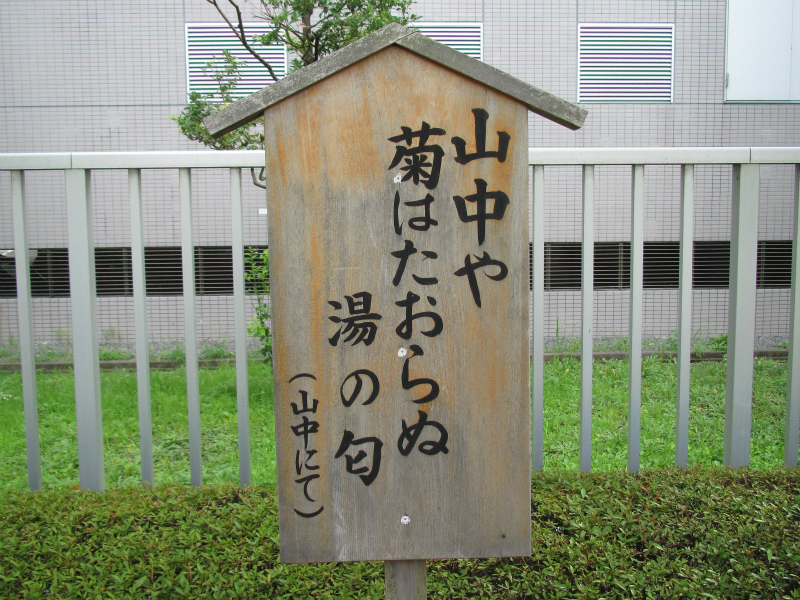 山中や
菊はたおらぬ
湯の匂
(山中にて)